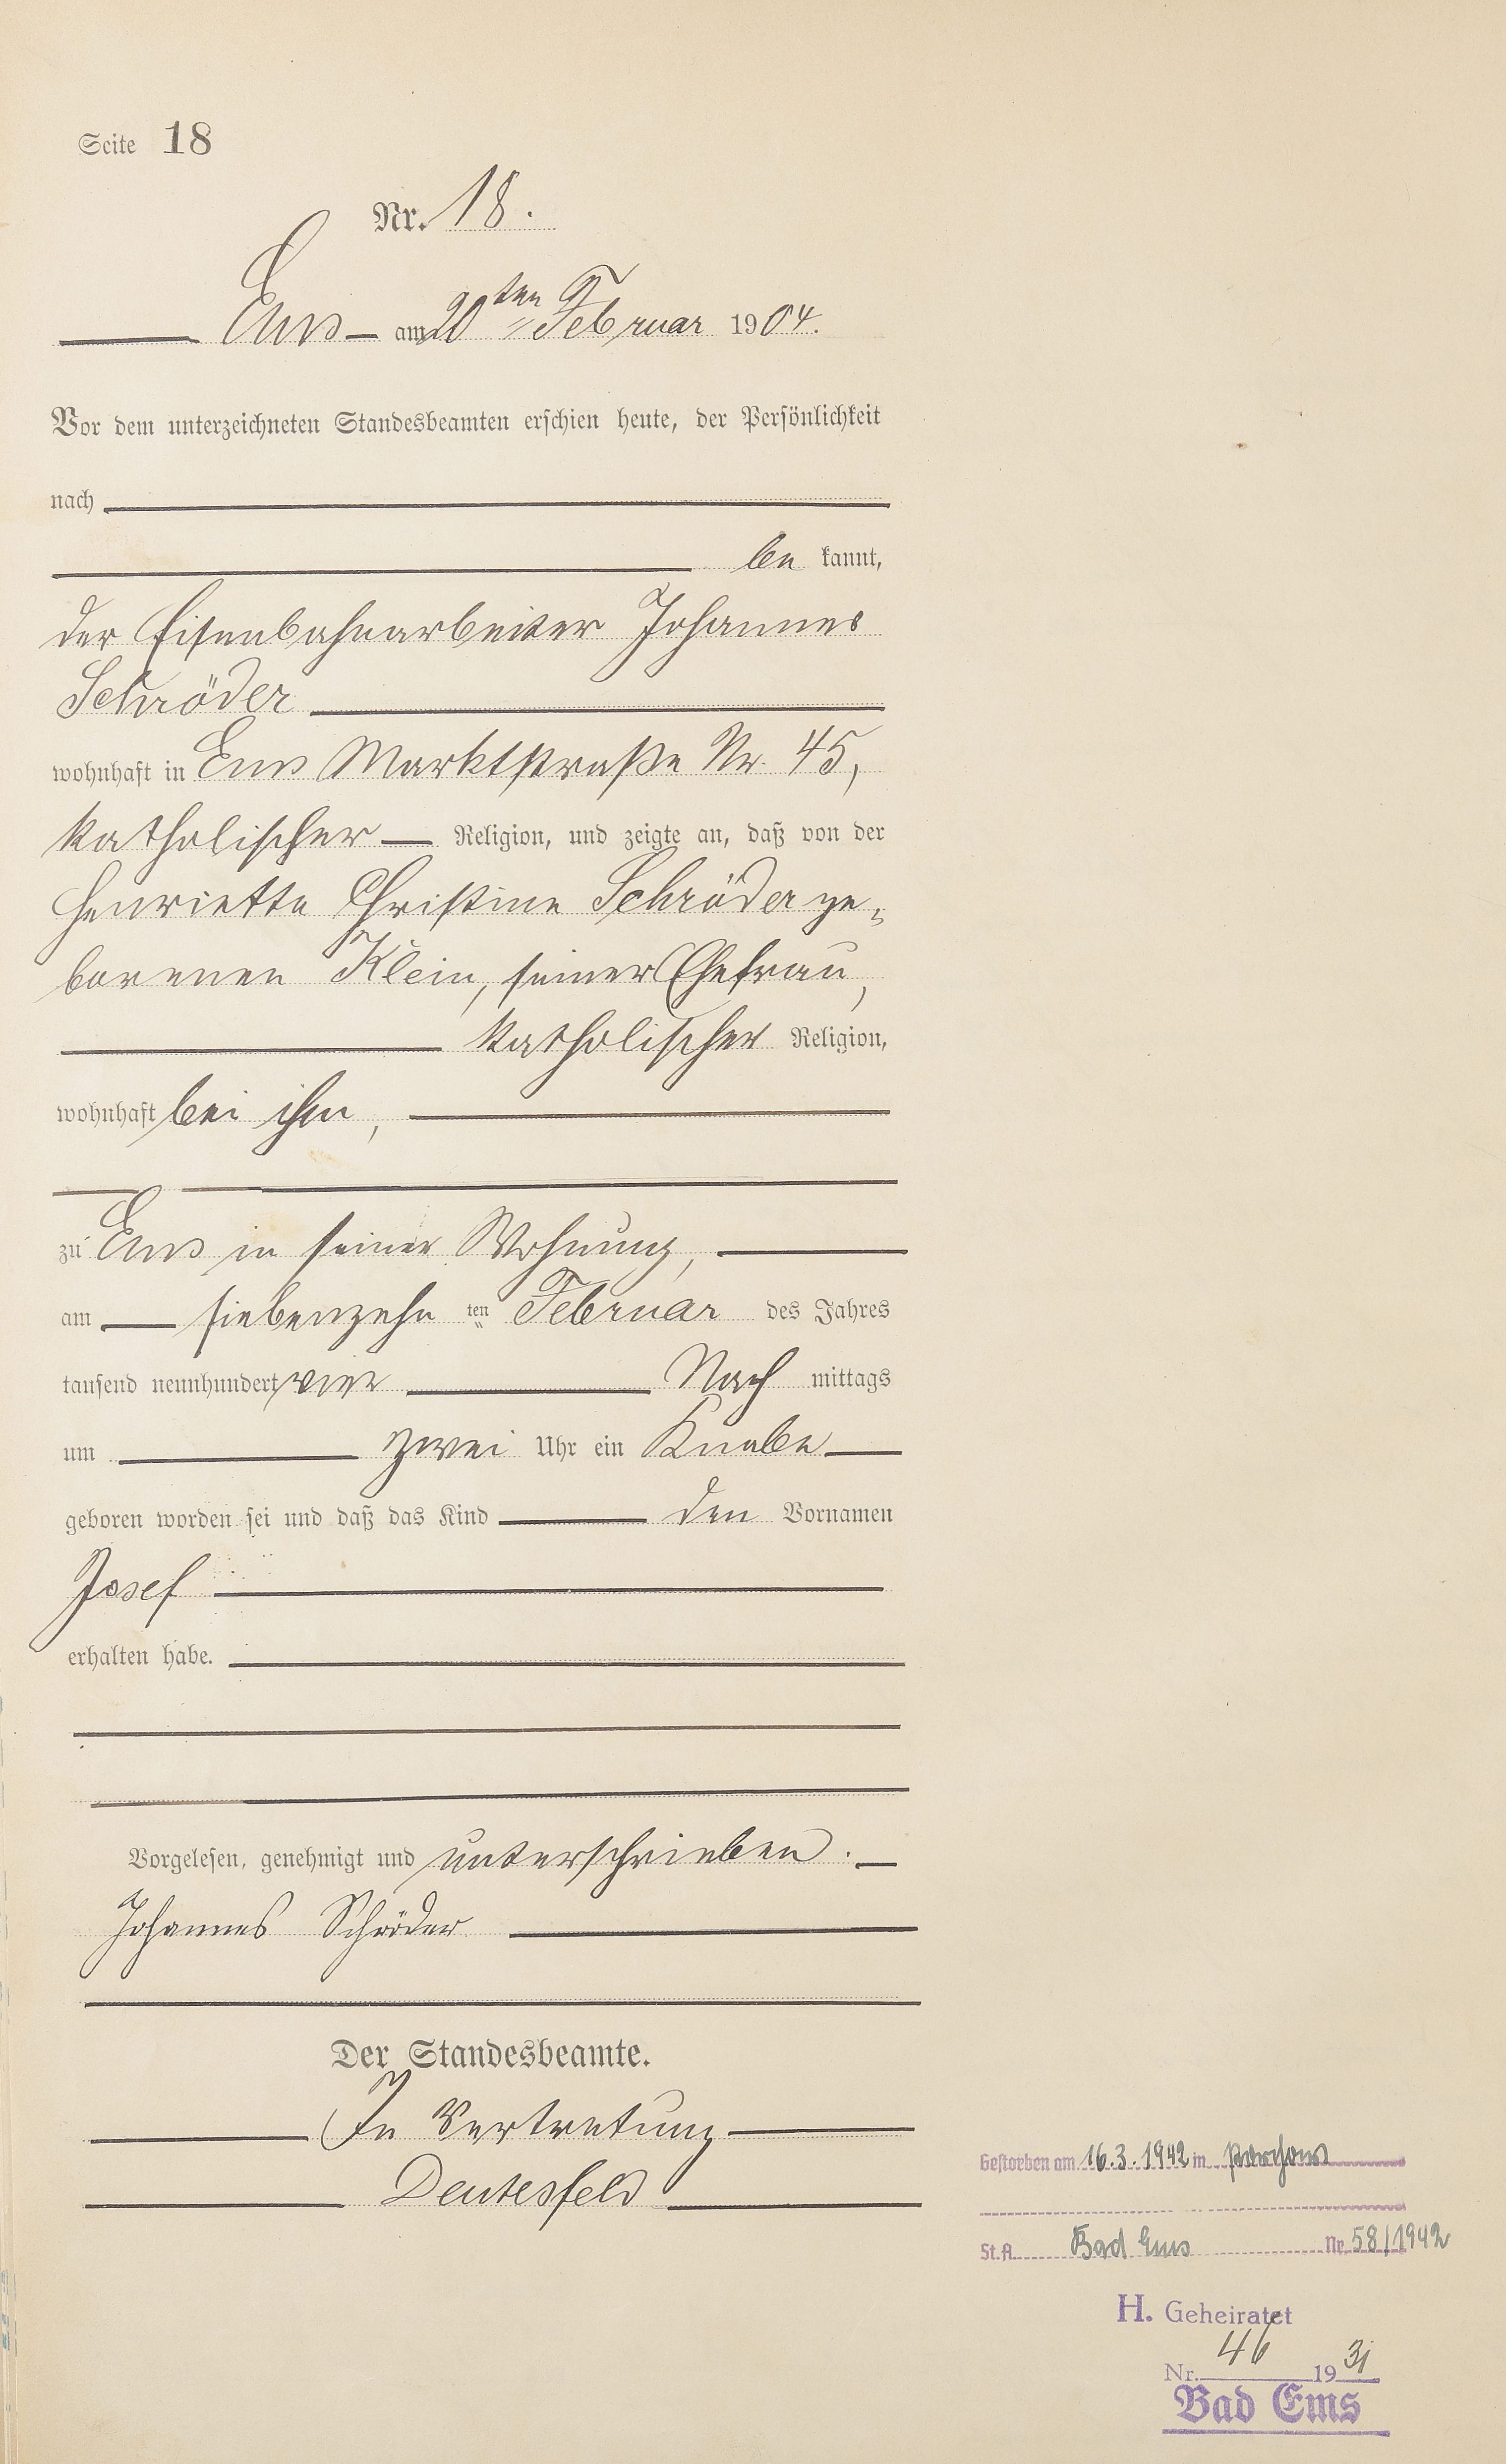 Seite 18
Nr. 18.
Ems am 20ten Februar 1904.
Vor dem unterzeichneten Standesbeamten erschien heute, der Persönlichkeit
nach
be kannt,
der Eisenbahnarbeiter Johannes
Schröder
wohnhaft in Ems Marktstraße Nr. 45,
katholischer Religion, und zeigte an, daß von der
Henriette Christine Schröder ge=
borenen Klein, seiner Ehefrau,
katholischer Religion,
wohnhaft bei ihm,
zu Ems in seiner Wohnung,
am siebenzehn ten Februar des Jahres
tausend neunhundert vier Nach mittags
um zwei Uhr ein Knabe
geboren worden sei und daß das Kind den Vornamen
Josef
erhalten habe.
Vorgelesen, genehmigt und unterschrieben.
Johannes Schröder
Der Standesbeamte.
In Vertretung
Deutesfeld
Gestorben am 16.3.1942 in
St. A. Bad Ems Nr. 58/1942
H. Geheiratet
Nr. 46 1931
Bad Ems